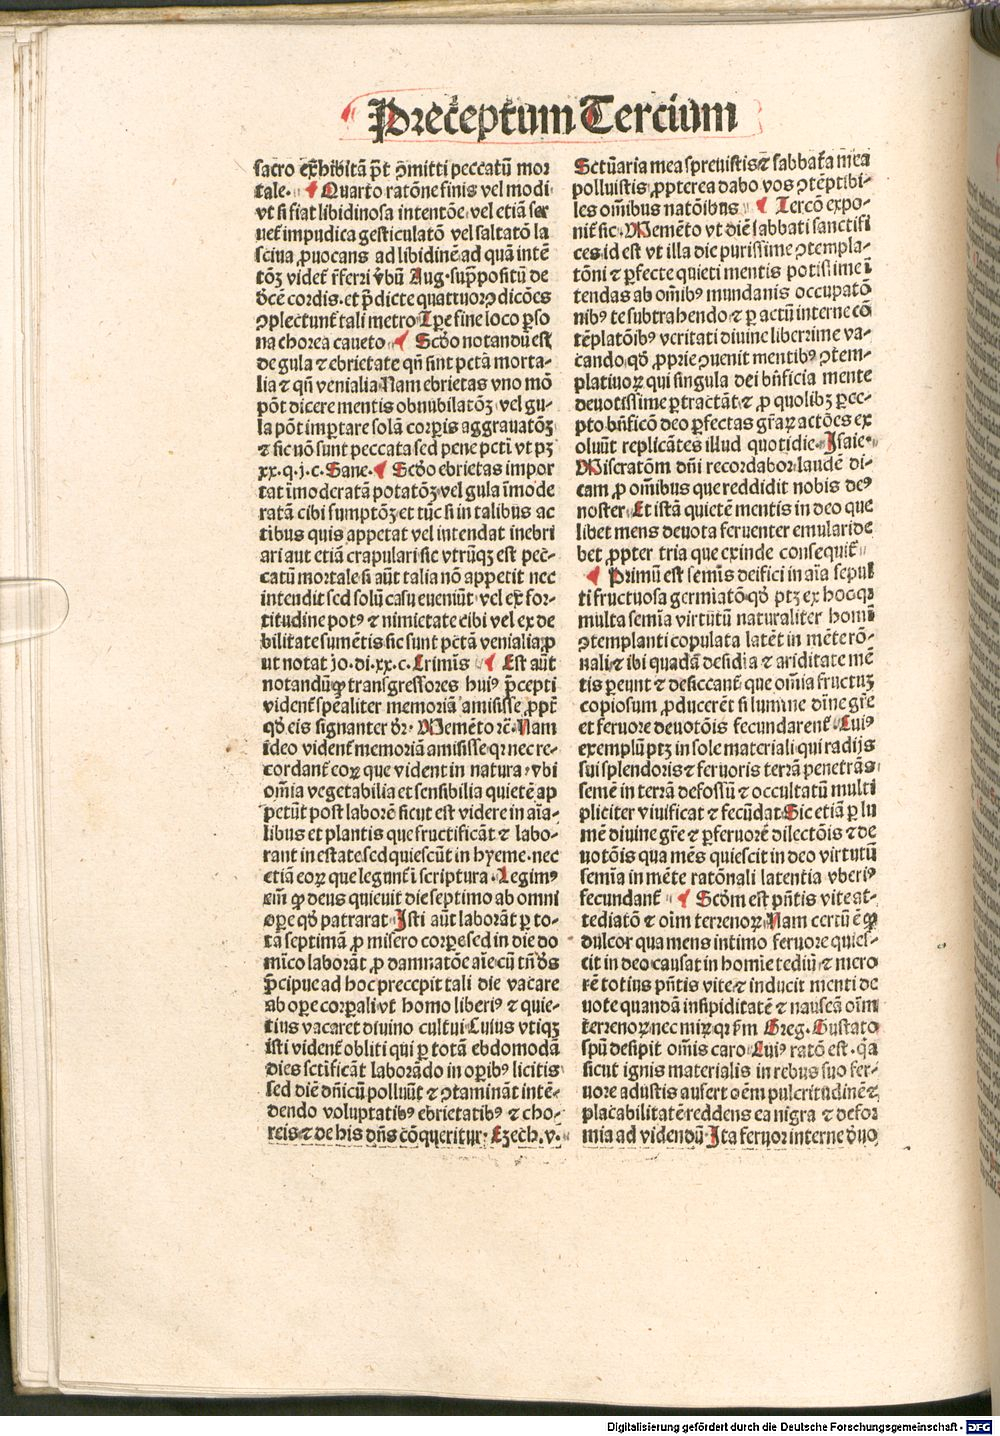 Prec̄eptum Tercium
sacro exhibitā pn̄t ꝯmitti peccatū mor
tale. Quarto ratōne finis vel modi
vt si fiat libidinosa intentōe vel etiā ser
uet̄ impudica gesticulatō vel saltatō la
sciua ꝓuocans ad libidinē ad quā intē
tōꝫ videt̄ r̄ferri v̄bū Aug. supp̄ositū de
ꝯplectunt̄ tali metro Tp̄e fine loco ꝑso
na chorea caueto Scd̄o notandū est
de gula et ebrietate qn̄ sint pctā morta-
lia ⁊ qn̄ venialia Nam ebrietas vno mō
pōt dicere mentis obnubilatōꝫ vel gu-
la pōt imꝑtare solā corꝑis aggrauatōꝫ
⁊ sic nō sunt peccata sed pene pcti vt pꝫ
xx.q.j.c. Sane. Scd̄o ebrietas impor
tat īmoderatā potatōꝫ vel gula īmode
ratā cibi sumptōꝫ et tūc si in talibus ac
tibus quis appetat vel intendat inebri
ari aut etiā crapulari sic vtrūqꝫ est pec-
catū mortale si aūt talia nō appetit nec
intendit sed solū casu eueniūt vel ex for-
titudine potꝰ ⁊ nimietate cibi vel ex de
bilitate sumētis sic sunt pctā venialia ꝓ
ut notat jo.di.xx.c. Crimīs Est aūt
notandū ꝙ transgressores huiꝰ p̄cepti
vident̄ spēaliter memoriā amisisse ꝓpt̄
qd̄ eis signanter dr̄. Memēto rc̄. Nam
ideo vident̄ memoriā amisisse qꝛ nec re-
cordant̄ eoꝝ que vident in natura. vbi
om̄ia vegetabilia et sensibilia quietē ap
petūt post laborē sicut est videre in aīa-
libus et plantis que fructificāt ⁊ labo-
rant in estate sed quiescūt in hyeme. nec
etiā eoꝝ que legunt̄ ī scriptura. Legimꝰ
eīm ꝙ deus quieuit die septimo ab omni
oꝑe qd̄ patrarat Isti aūt laborāt ꝑ to-
ta septimā ꝓ misero corꝑe sed in die do
mīco laborāt ꝓ damnatōe aīe cū tn̄ dn̄s
p̄cipue ad hoc precepit tali die vacare
ab oꝑe corꝑali vt homo liberiꝰ ⁊ quie-
tius vacaret diuino cultui Cuius vtiqꝫ
isti vident̄ obliti qui ꝑ totā ebdomodā
dies sctificāt laborādo in oꝑibꝰ licitis
sed diē dn̄icū polluūt ⁊ ꝯtamināt intē-
dendo voluptatibꝰ ebrietatibꝰ ⁊ cho-
reis ⁊ de his dn̄s cōqueritur. Ezech.v.
Sctūaria mea spreuistis ⁊ sabbata mea
polluistis ꝓpterea dabo vos ꝯtēptibi-
les om̄ibus natōibus Tercō expo-
nit̄ sic. Memēto vt diē sabbati sanctifi
ces id est vt illa die purissime ꝯtempla-
tōni ⁊ ꝑfecte quieti mentis potissime ī
tendas ab om̄ibꝰ mundanis occupatō
nibꝰ te subtrahendo ⁊ ꝑ actū interne cō
tēplatōibꝰ veritati diuine liberrime va-
cando qd̄ ꝓprie ꝯuenit mentibꝰ ꝯtem-
platiuoꝝ qui singula dei bn̄ficia mente
deuotissime ꝑtractāt ⁊ ꝓ quolibꝫ ꝑce-
pto bn̄ficō deo ꝑfectas gr̄aꝝ actōes ex
oluūt replicātes illud quotidie. Isaie.
Miseratōm dn̄i recordabor laudē di-
cam ꝓ om̄ibus que reddidit nobis deꝰ
noster Et istā quietē mentis in deo que
libet mens deuota feruenter emulari de
bet ꝓpter tria que exinde consequit̄
Primū est semīs deifici in aīa sepul
ti fructuosa germīatō qd̄ ptꝫ ex hoc qꝛ
multa semīa virtutū naturaliter homī
ꝯtemplanti copulata latēt in mēte rō-
nali ⁊ ibi quadā desidia ⁊ ariditate mē
tis ꝑeunt ⁊ desiccant̄ que om̄ia fructuꝫ
copiosum ꝓducerēt si lumine dīne gr̄e
et feruore deuotōis fecundarent̄. Cuiꝰ
exemplū ptꝫ in sole materiali qui radijs
sui splendoris ⁊ feruoris terrā penetrās
semē in terrā defossū ⁊ occultatū multi
pliciter viuificat ⁊ fecūdat Sic etiā ꝑ lu
mē diuine gr̄e ⁊ ꝑ feruorē dilectōis ⁊ de
uotōis qua mēs quiescit in deo virtutū
semīa in mēte ratōnali latentia vberiꝰ
fecundant̄ Scd̄m est pn̄tis vite at-
tediatō ⁊ oīm terrenoꝝ Nam certū ē ꝙ
dulcor qua mens intimo feruore quies-
cit in deo causat in homīe tediū ⁊ mero
rē totius pn̄tis vite ⁊ inducit menti de
uote quandā insipiditatē ⁊ nauseā oīm
terrenoꝝ nec miꝝ qꝛ sm̄ Greg. Gustato
spū desipit om̄is caro Cuiꝰ ratō est. qꝛ
sicut ignis materialis in rebus suo fer-
uore adustis aufert oēm pulcritudinē ⁊
placabilitatē reddens ea nigra ⁊ defor
mia ad videndū Ita feruor interne
Digitalisierung gefördert durch die Deutsche Forschungsgemeinschaft - DFG